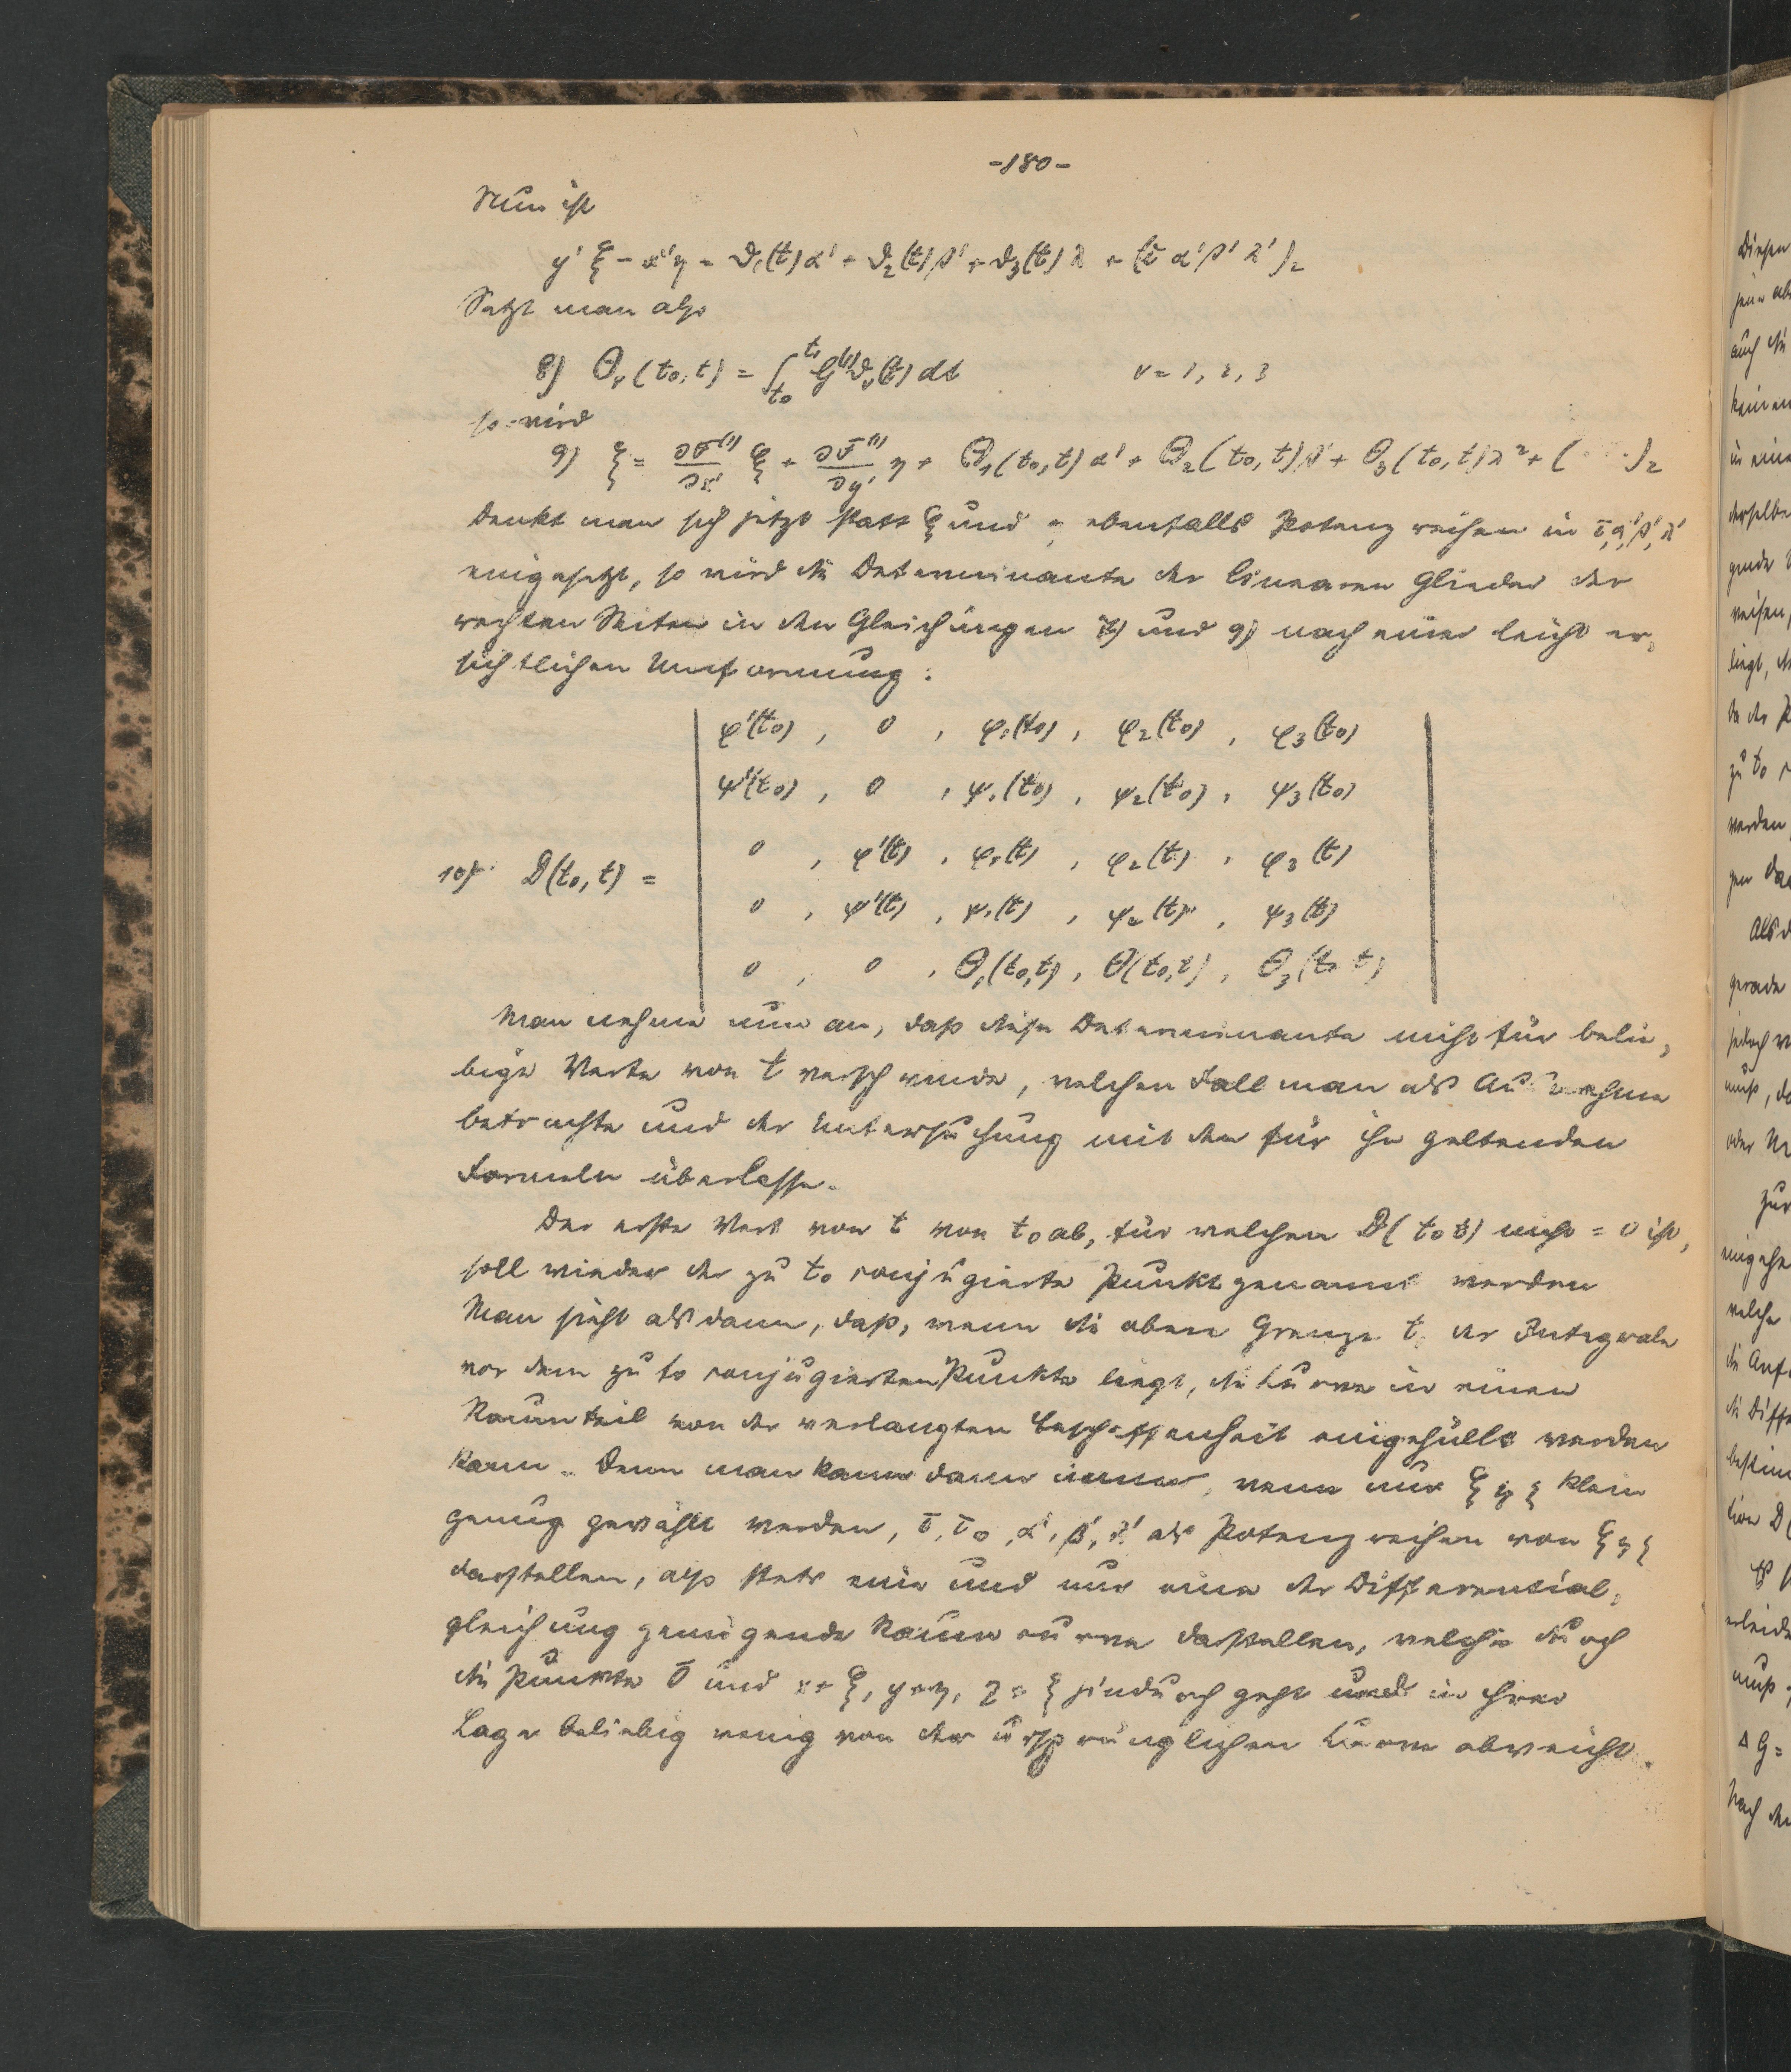 -180-
Nun ist
y' ξ - x' η = ϑ₁(t) α' + ϑ₂(t) β' + ϑ₃(t) λ + (τ α' β' λ')₂
Setzt man also
8) Θᵥ(t₀, t) = ∫ₜ₀ᵗ¹ G⁽¹⁾ϑᵥ(t) dt ν = 1, 2, 3
so wird
9) ξ = ∂F⁽¹⁾/∂x' ξ + ∂F⁽¹⁾/∂y' η + Θ₁(t₀, t) α' + Θ₂(t₀, t) β' + Θ₃(t₀, t) λ² + ( · · · )₂
Denkt man sich jetzt statt ξ und η ebenfalls Potenzreihen in τ, α', β', λ'
eingesetzt, so wird die Determinante der linearen Glieder der
rechten Seiten in den Gleichungen 7) und 9) nach einer leicht er-
sichtlichen Umformung:
φ'(t₀), 0, φ₁(t₀), φ₂(t₀), φ₃(t₀)
ψ'(t₀), 0, ψ₁(t₀), ψ₂(t₀), ψ₃(t₀)
10) D(t₀, t) = 0, φ'(t), φ₁(t), φ₂(t), φ₃(t)
0, ψ'(t), ψ₁(t), ψ₂(t), ψ₃(t)
0, 0, Θ₁(t₀,t), Θ(t₀,t), Θ₃(t₀ t)
Man nehme nun an, daß diese Determinante nicht für belie-
bige Werte von t verschwinde, welchen Fall man als Ausnahme
betrachte und der Untersuchung mit den für ihn geltenden
Formeln überlasse.
Der erste Wert von t von t₀ ab, für welchen D(t₀ t) nicht = 0 ist,
soll wieder der zu t₀ conjugierte Punkt genannt werden
Man sieht alsdann, daß, wenn die obere Grenze t₁ der Integrale
vor dem zu t₀ conjugierten Punkte liegt, die Curve in einen
Raumteil von der verlangten Beschaffenheit eingehüllt werden
kann. Denn man kann dann immer, wenn nur ξ η ξ klein
genug gewählt werden, τ, τ₀, α', β', λ' als Potenzreihen von ξ η ξ
darstellen, also stets eine und nur eine der Differential-
gleichung genügende Raumcurve darstellen, welche durch
die Punkte 0 und x + ξ, y + η, z + ξ hindurch geht und in ihrer
Lage beliebig wenig von der ursprünglichen Curve abweicht.